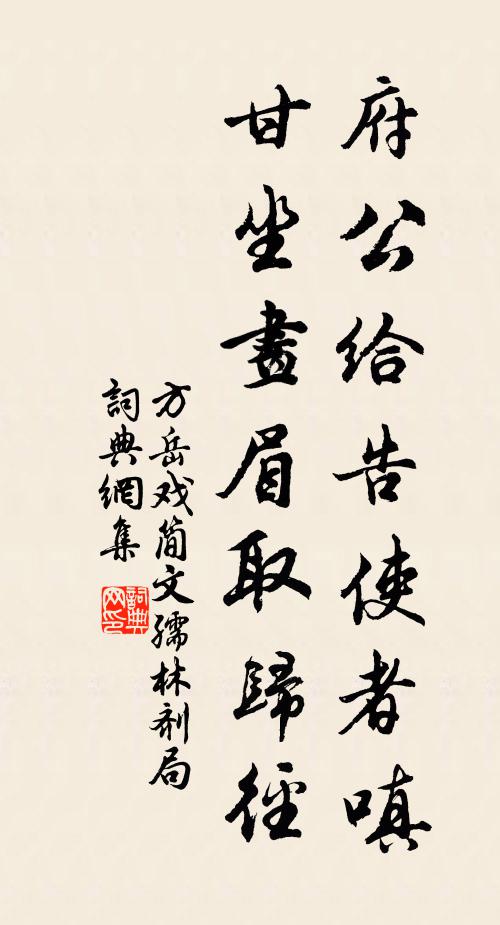 府公給告使者嗔
甘坐畫眉取歸徑
方岳戏簡文孺林剂局
詞典網集
詞典网印